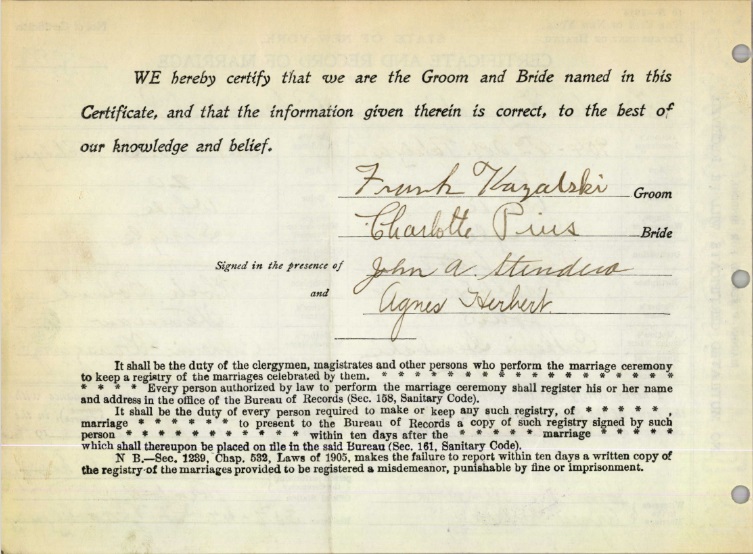 WE hereby certify that we are the Groom and Bride named in this
Certificate, and that the information given therein is correct, to the best of
our knowledge and belief.
Frank Kazalski Groom
Charlotte Pius Bride
Signed in the presence of John A. Stendero
and Agnes Herbert
It shall be the duty of the clergymen, magistrates and other persons who perform the marriage ceremony
to keep a registry of the marriages celebrated by them. * * * * * * * * * * * * * * * * * *
* * * * Every person authorized by law to perform the marriage ceremony shall register his or her name
and address in the office of the Bureau of Records (Sec. 158, Sanitary Code).
It shall be the duty of every person required to make or keep any such registry, of * * * * * ,
marriage * * * * * * to present to the Bureau of Records a copy of such registry signed by such
person * * * * * * * * * * * within ten days after the * * * * * marriage * * * * *
which shall thereupon be placed on file in the said Bureau (Sec. 161, Sanitary Code).
N B.—Sec. 1239, Chap. 532, Laws of 1905, makes the failure to report within ten days a written copy of
the registry of the marriages provided to be registered a misdemeanor, punishable by fine or imprisonment.